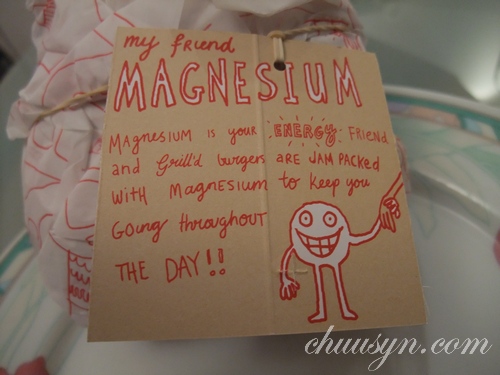 my friend
MAGNESIUM
MAgnesIUM is your ENERGY Friend
and Grill'd burgers ARE JAM PACKed
with Magnesium to keep you
Going throughout
THE DAY!!
chuusyn.com